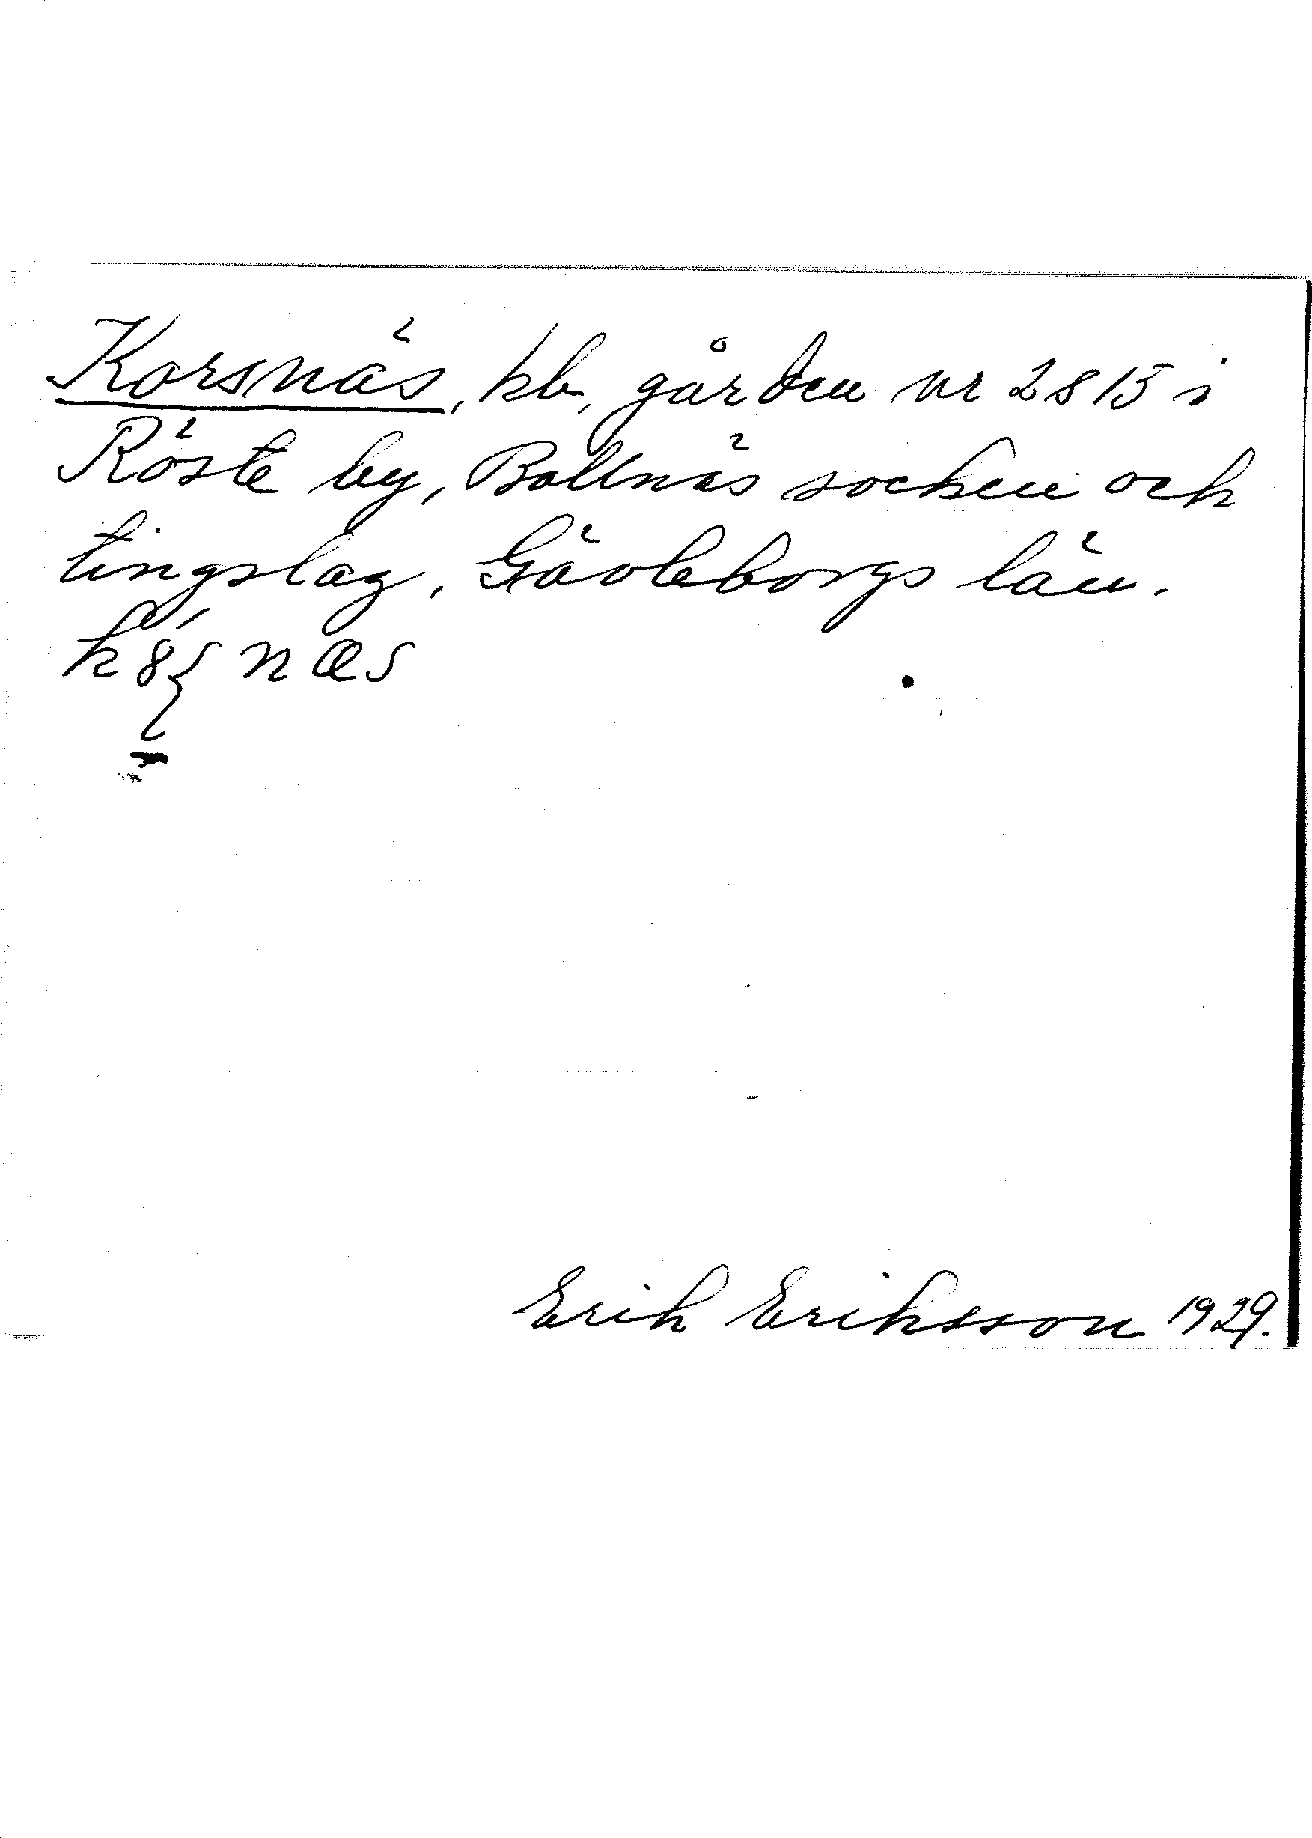 Korsnäs, kb, gården nr 2815 i
Röste by, Bollnäs socken och
tingslag, Gävleborgs län.
Erik Eriksson 1929.